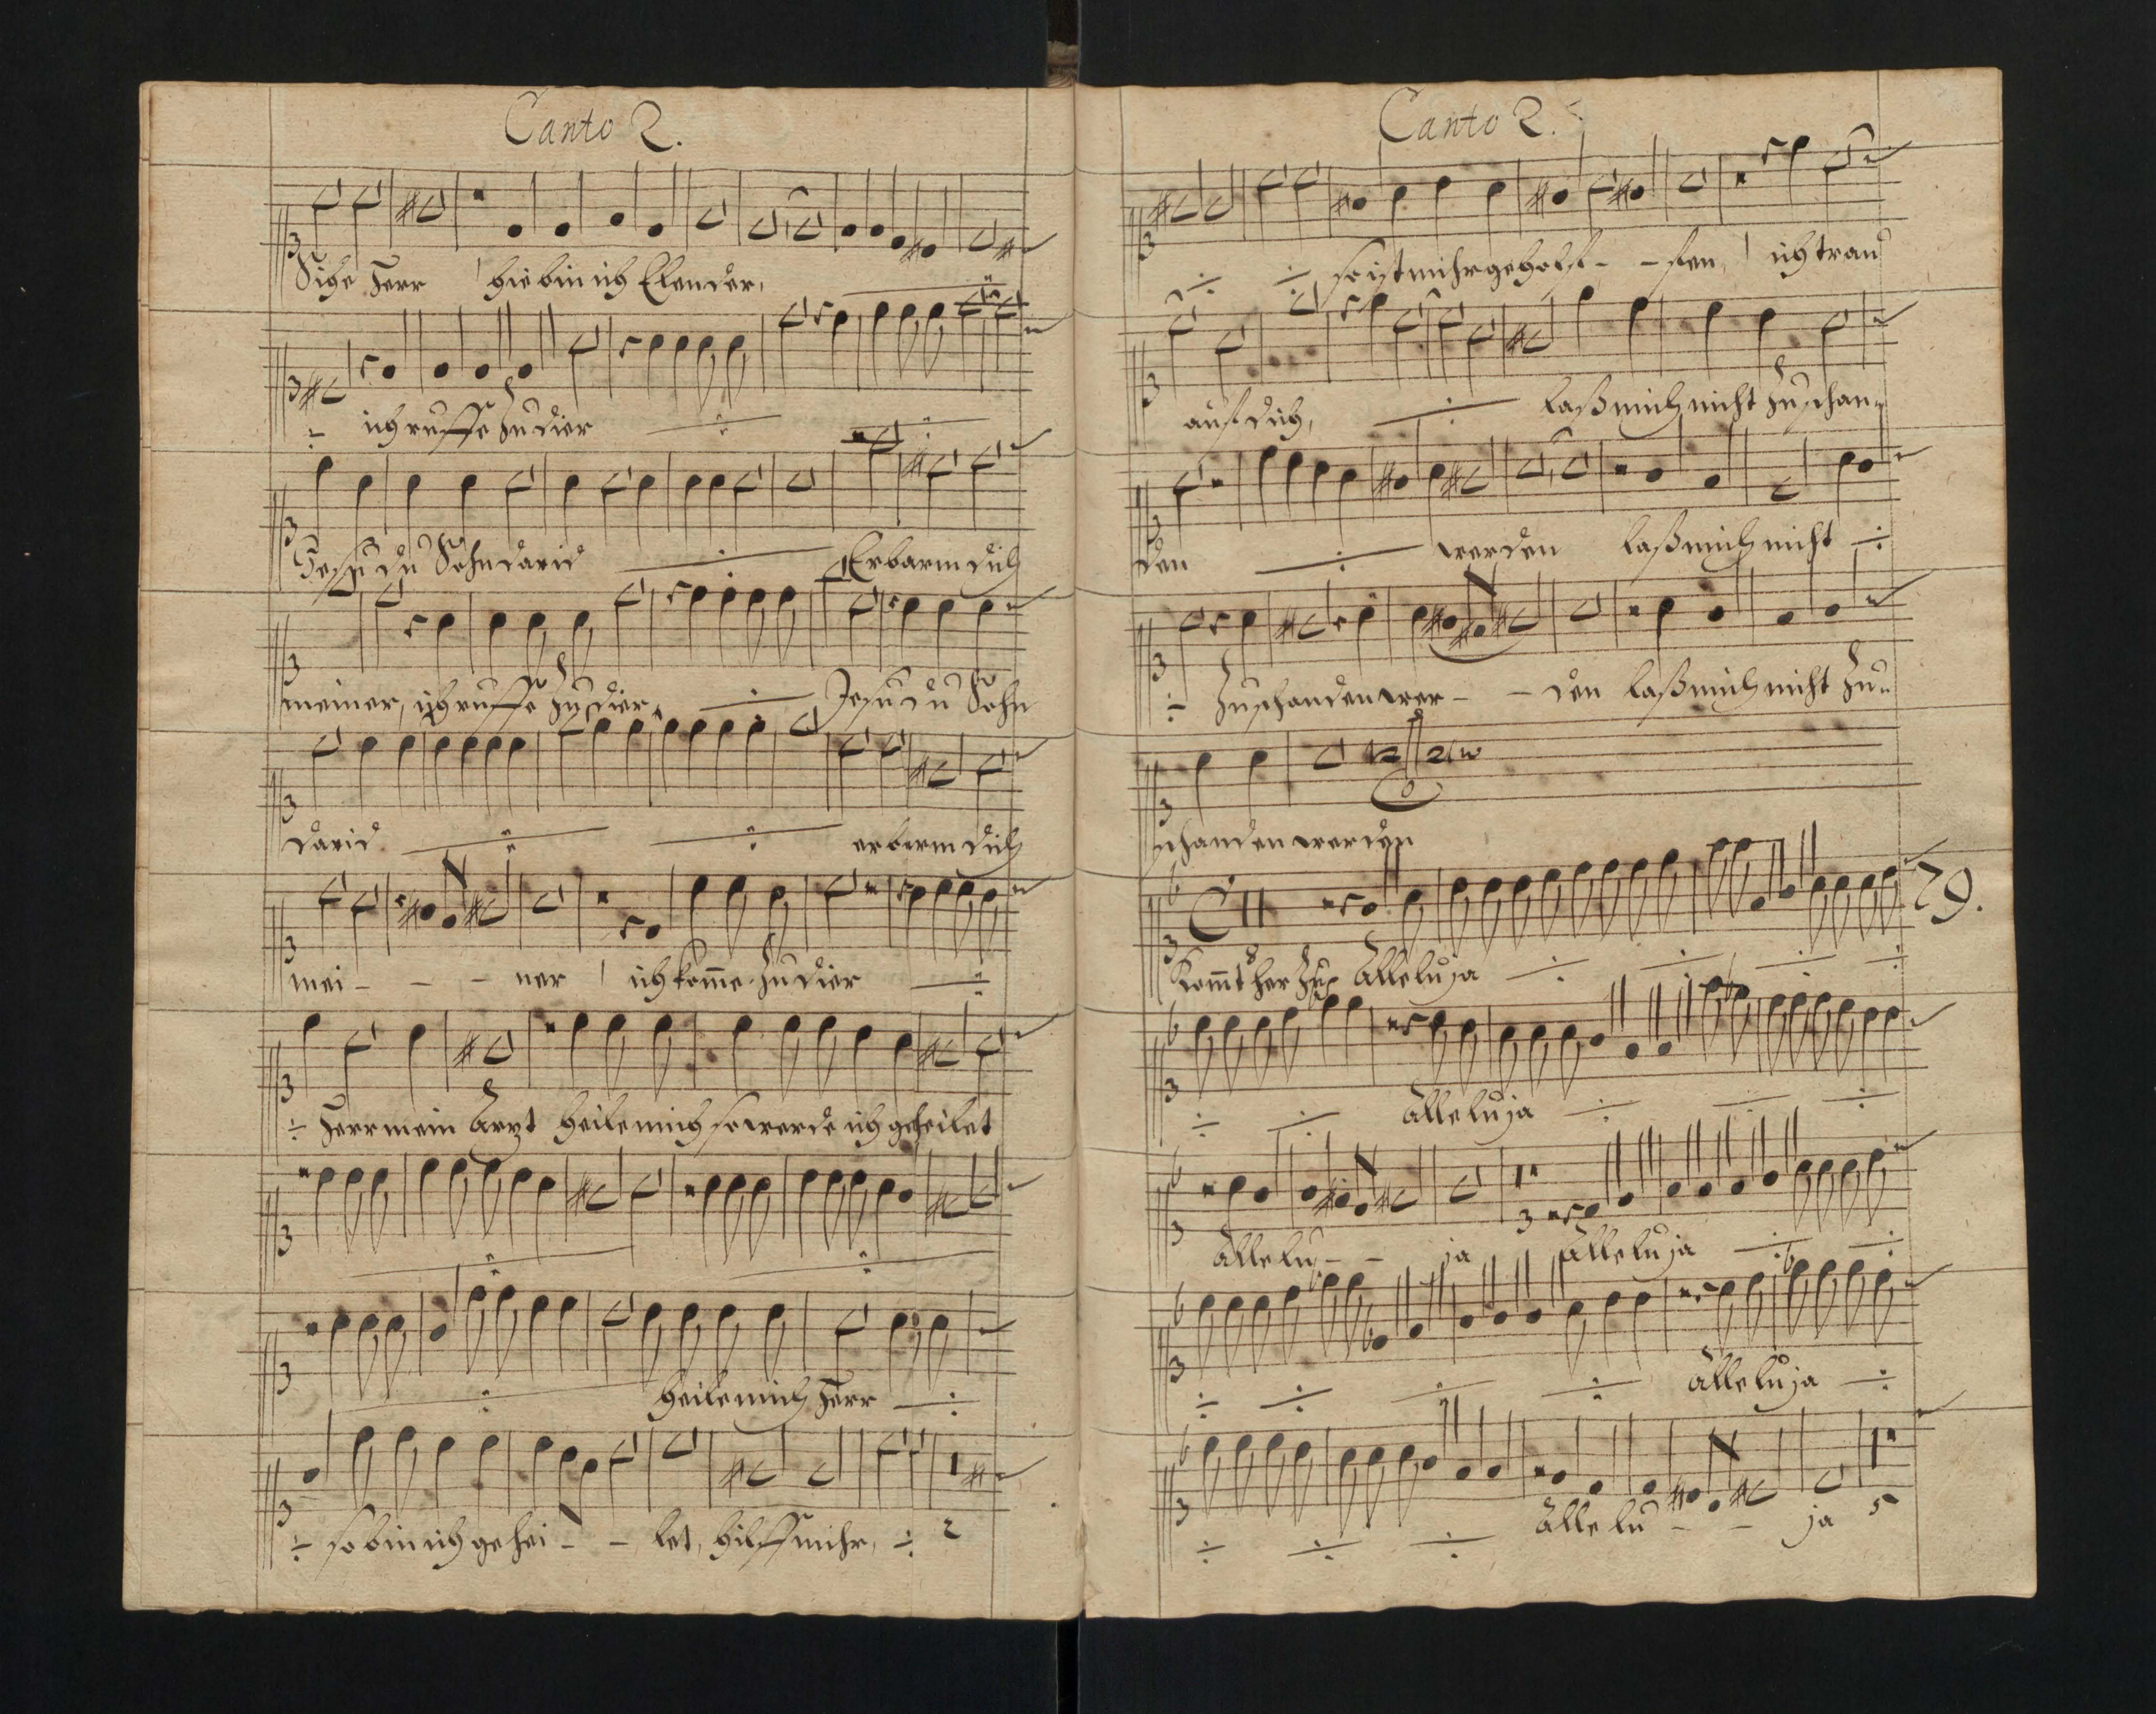 Canto 2.
Sihe Herr hie bin ich Elender,
÷ ich ruffe zu dier ÷ ÷
Jesu du Sohn david ÷ Erbarm dich
meiner, ich ruffe zu dier, ÷ Jesu du Sohn
david ÷ ÷ erbarm dich
mei - - - ner ich kom̄e zu dier ÷
÷ Herr mein Artzt heile mich so werde ich geheilet
÷ ÷
÷ heile mich Herr ÷
÷ so bin ich gehei - - let, hilff mihr, ÷ 2
Canto 2.
÷ ÷ so ist mihr geholf - - fen, ich trau
auf dich, ÷ laß mich nicht zu schan-
den ÷ werden laß mich nicht ÷
÷ zu schanden wer - - den laß mich nicht zu-
schanden werden
29.
Kom̄t her zu Alleluja ÷ ÷ ÷ ÷
÷ ÷ Alleluja ÷ ÷ ÷
3
Allelu - - ja Alleluja ÷ ÷
÷ ÷ ÷ ÷ Alleluja ÷
÷ ÷ ÷ Allelu - - ja 5